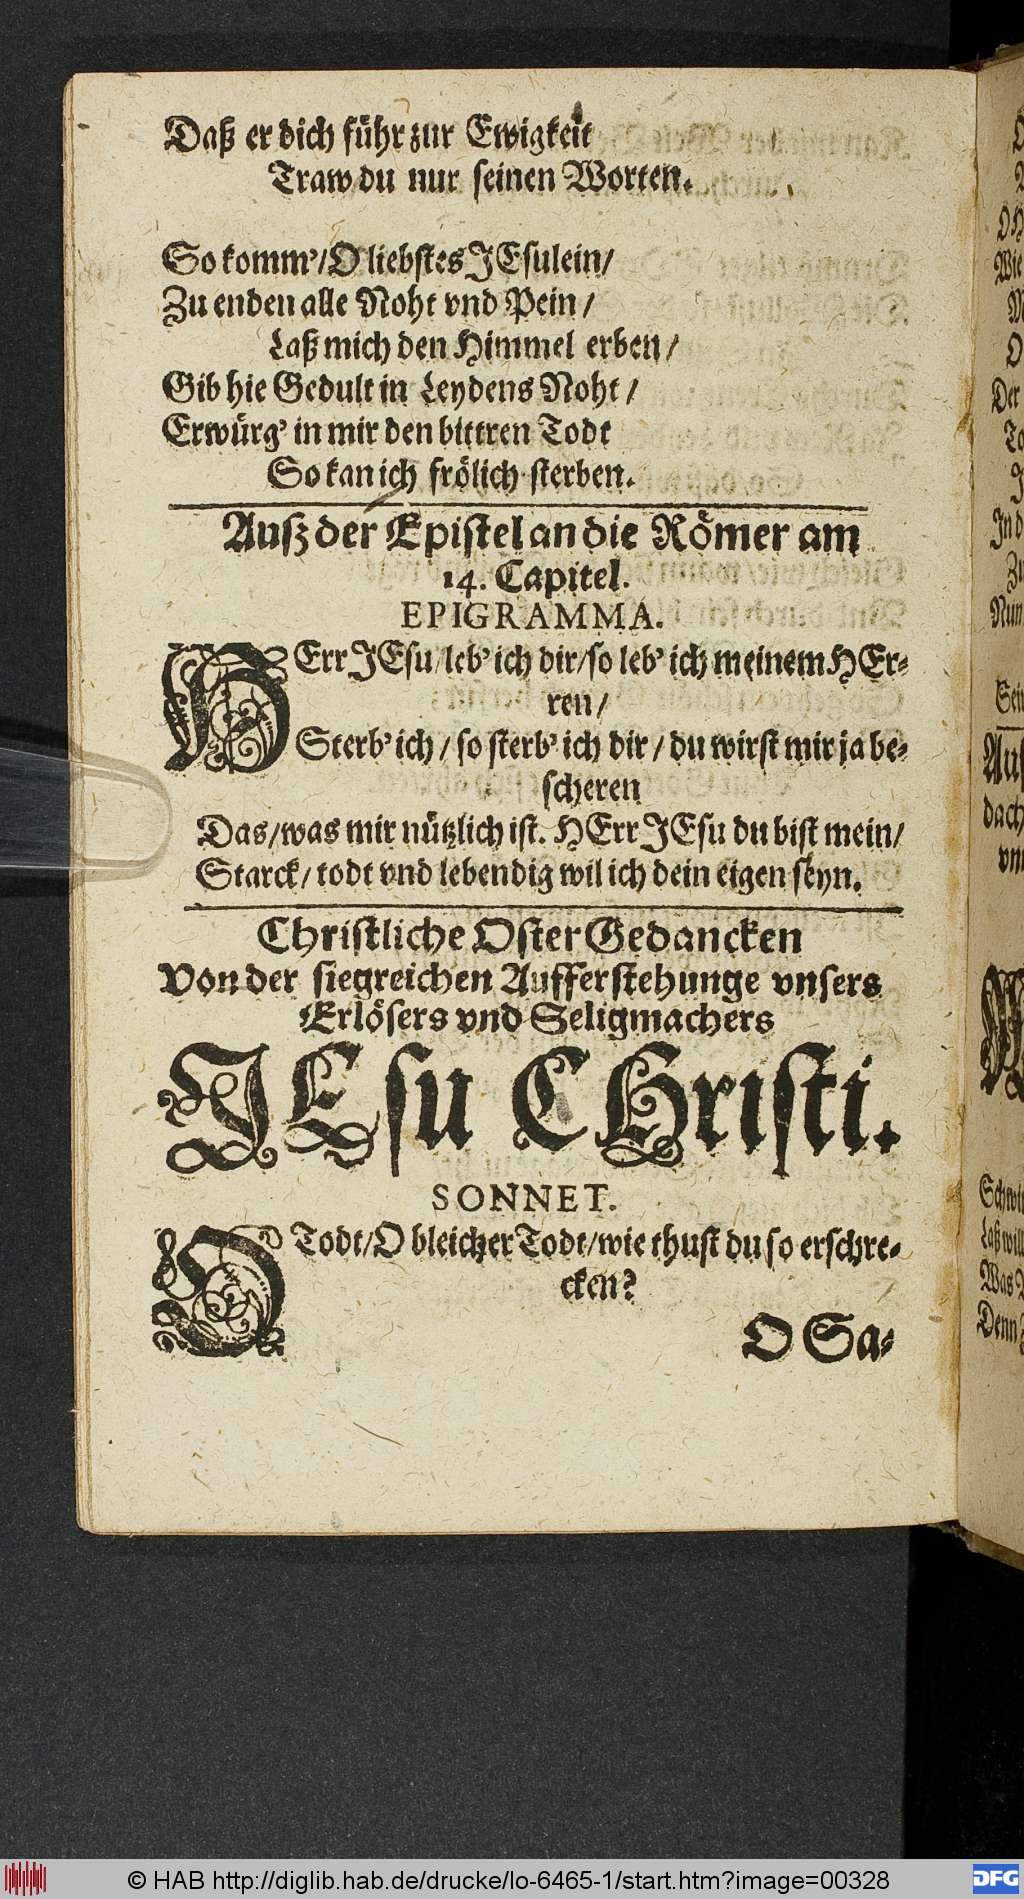 Daß er dich führ zur Ewigkeit
Traw du nur seinen Worten.
So komm'/O liebstes JEsulein/
Zu enden alle Noht vnd Pein/
Laß mich den Himmel erben/
Gib hie Gedult in Leydens Noht/
Erwürg' in mir den bittren Todt
So kan ich frölich sterben.
Ausz der Epistel an die Römer am
14. Capitel.
EPIGRAMMA.
HErr JEsu/leb' ich dir/so leb' ich meinem HEr-
ren/
Sterb' ich/so sterb' ich dir/du wirst mir ja be-
scheren
Das/was mir nützlich ist. HErr JEsu du bist mein/
Starck/todt vnd lebendig wil ich dein eigen seyn.
Christliche Oster Gedancken
Von der siegreichen Aufferstehunge vnsers
Erlösers vnd Seligmachers
JEsu CHristi.
SONNET.
O Todt/O bleicher Todt/wie thust du so erschre-
cken?
O Sa-
© HAB http://diglib.hab.de/drucke/lo-6465-1/start.htm?image=00328
DFG